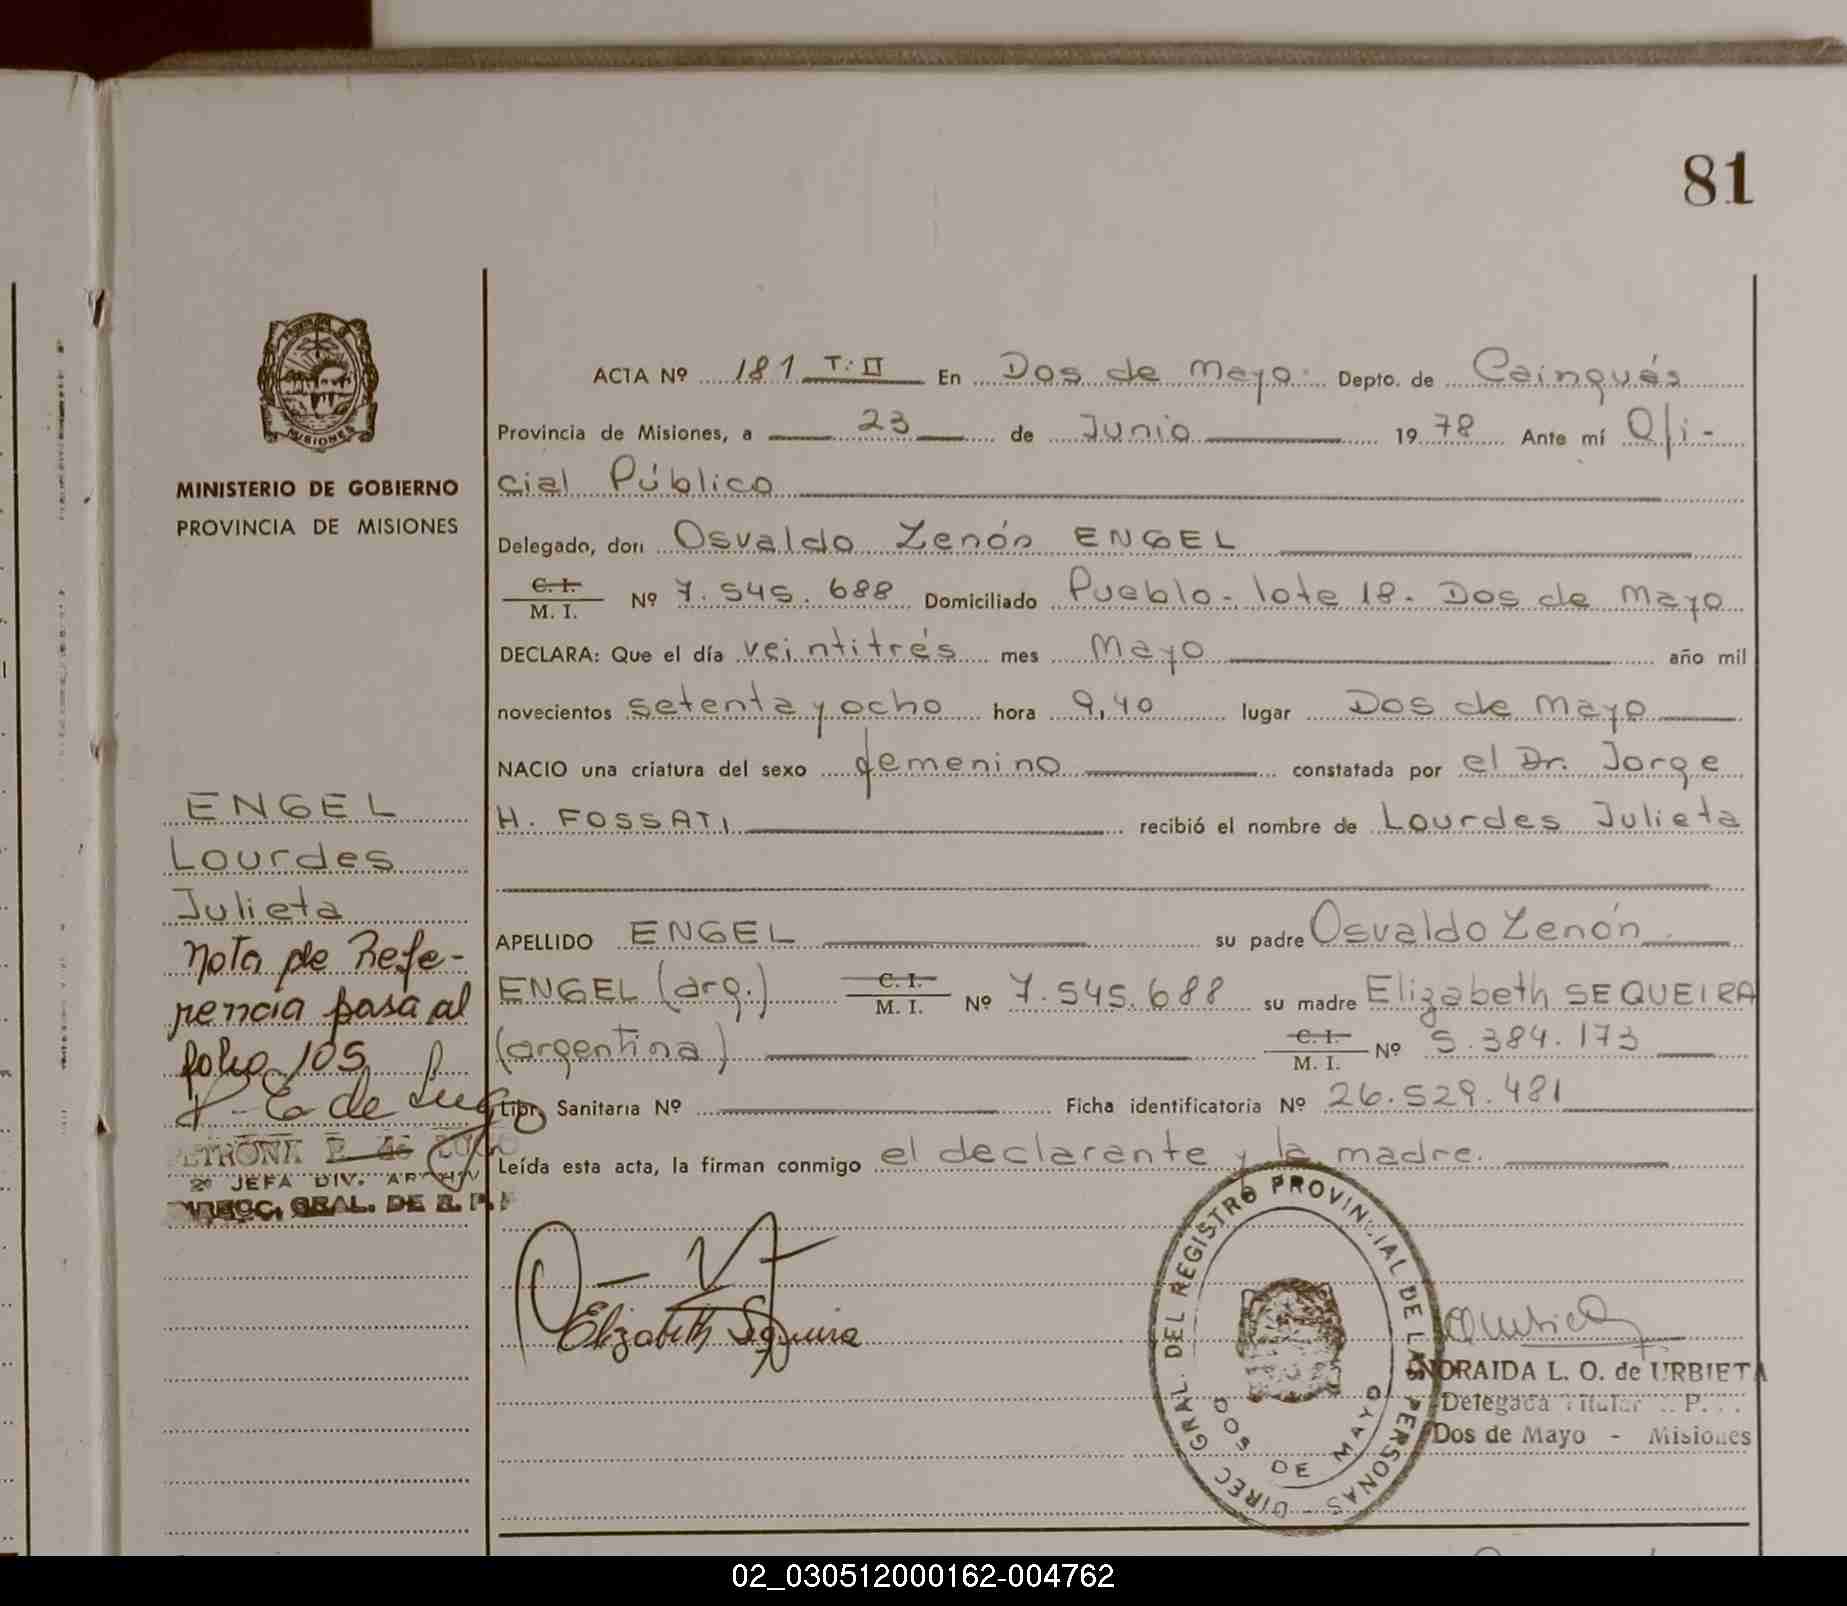 81
MISIONES
MINISTERIO DE GOBIERNO
PROVINCIA DE MISIONES
ENGEL
Lourdes
Julieta
Nota de Refe-
rencia pasa al
folio 105
2ª JEFA DIV. ARCHIV
DIRECC. GRAL. DE R. P.
ACTA Nº 181 T: II En Dos de Mayo Depto. de Cainguás
Provincia de Misiones, a 23 de Junio 1978 Ante mí Ofi-
cial Público
Delegado, don Osvaldo Zenón ENGEL
C. I.
M. I. Nº 7.545.688 Domiciliado Pueblo - lote 18 - Dos de Mayo
DECLARA: Que el día veintitrés mes Mayo año mil
novecientos setenta y ocho hora 9,40 lugar Dos de Mayo
NACIO una criatura del sexo femenino constatada por el Dr. Jorge
H. FOSSATI recibió el nombre de Lourdes Julieta
APELLIDO ENGEL su padre Osvaldo Zenón
ENGEL (arg.) C. I. M. I. Nº 7.545.688 su madre Elizabeth SEQUEIRA
(argentina) C. I. M. I. Nº 5.384.173
Libr. Sanitaria Nº Ficha identificatoria Nº 26.529.481
Leída esta acta, la firman conmigo el declarante y la madre.
Elizabeth Sequeira
DIREC GRAL. DEL REGISTRO PROVINCIAL DE LAS PERSONAS
DOS DE MAYO
NORAIDA L. O. de URBIETA
Delegada Titular
Dos de Mayo - Misiones
02_030512000162-004762